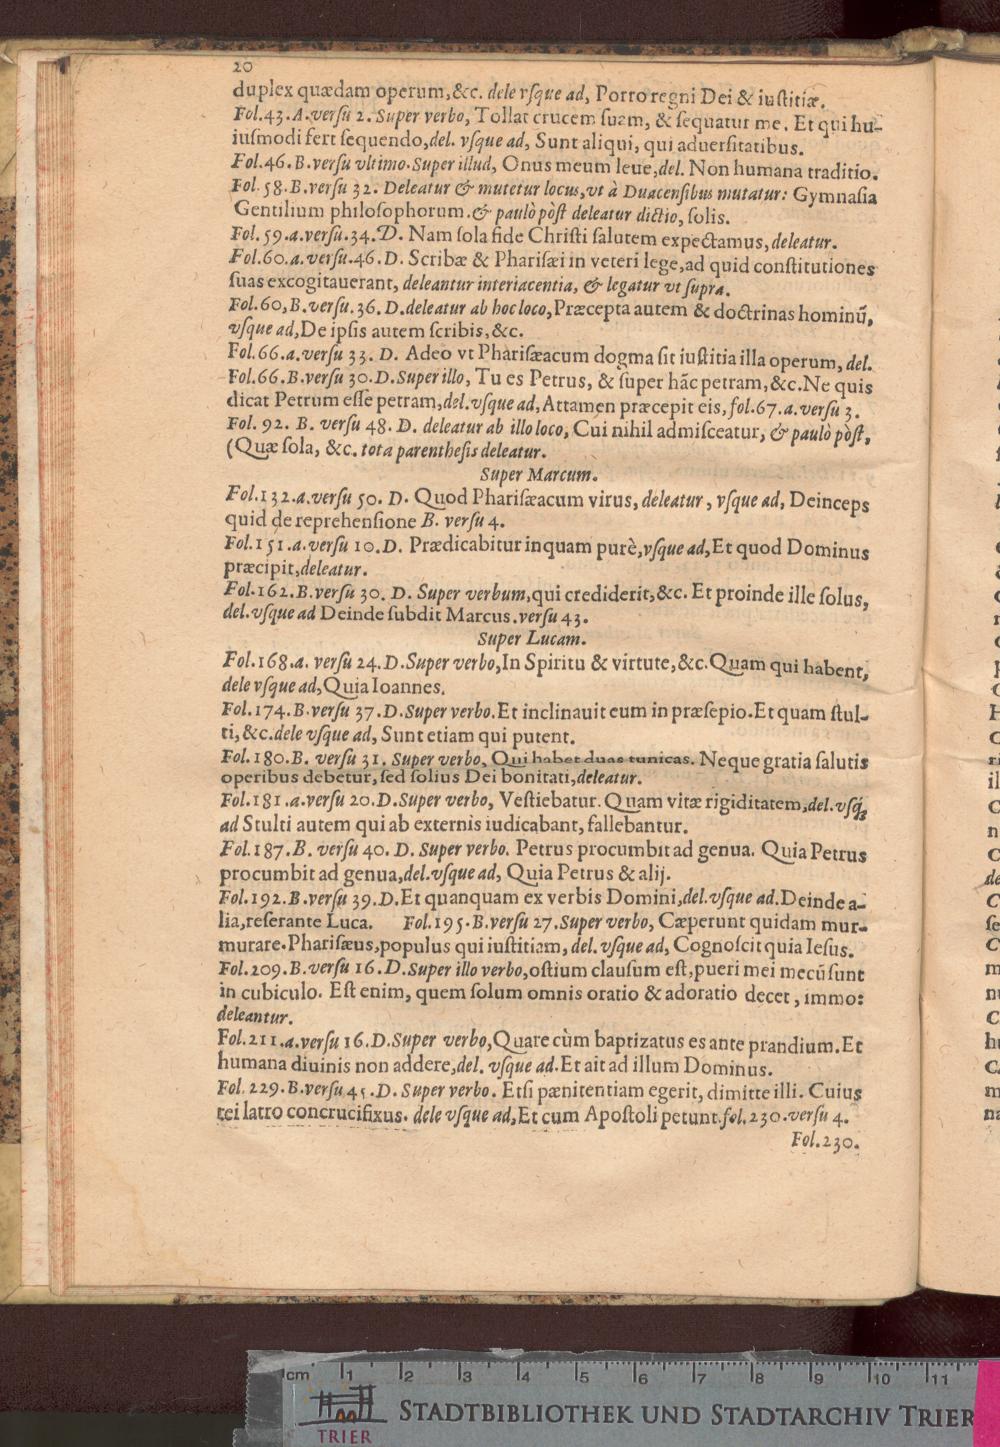 20
duplex quædam operum,&c. dele vſque ad, Porro regni Dei & iuſtitiæ.
Fol.43.A.verſu 2. Super verbo, Tollat crucem ſuam, & ſequatur me. Et qui hu-
iuſmodi fert ſequendo,del. vſque ad, Sunt aliqui, qui aduerſitatibus.
Fol.46.B.verſu vltimo.Super illud, Onus meum leue,del. Non humana traditio.
Fol.58.B.verſu 32. Deleatur & mutetur locus,vt à Duacenſibus mutatur: Gymnaſia
Gentilium philoſophorum.& paulò pòſt deleatur dictio, ſolis.
Fol.59.a.verſu.34.D. Nam ſola fide Chriſti ſalutem expectamus,deleatur.
Fol.60.a.verſu.46.D. Scribæ & Phariſæi in veteri lege,ad quid conſtitutiones
ſuas excogitauerant, deleantur interiacentia, & legatur vt ſupra.
Fol.60,B.verſu.36. D.deleatur ab hoc loco,Præcepta autem & doctrinas hominũ,
vſque ad,De ipſis autem ſcribis,&c.
Fol.66.a.verſu 33. D. Adeo vt Phariſæacum dogma ſit iuſtitia illa operum, del.
Fol.66.B.verſu 30.D.Super illo, Tu es Petrus, & ſuper hãc petram,&c.Ne quis
dicat Petrum eſſe petram,del.vſque ad,Attamen præcepit eis,fol.67.a.verſu 3.
Fol. 92. B. verſu 48. D. deleatur ab illo loco, Cui nihil admiſceatur, & paulò pòſt,
(Quæ ſola, &c. tota parentheſis deleatur.
Super Marcum.
Fol.132.a.verſu 50. D. Quod Phariſæacum virus, deleatur, vſque ad, Deinceps
quid de reprehenſione B. verſu 4.
Fol.151.a.verſu 10.D. Prædicabitur inquam purè,vſque ad,Et quod Dominus
præcipit,deleatur.
Fol.162.B.verſu 30. D. Super verbum,qui crediderit,&c. Et proinde ille ſolus,
del.vſque ad Deinde ſubdit Marcus.verſu 43.
Super Lucam.
Fol.168.a. verſu 24.D.Super verbo,In Spiritu & virtute,&c.Quam qui habent,
dele vſque ad,Quia Ioannes.
Fol.174.B.verſu 37.D.Super verbo.Et inclinauit eum in præſepio.Et quam ſtul-
ti,&c.dele vſque ad, Sunt etiam qui putent.
Fol.180.B. verſu 31. Super verbo, Qui habet duas tunicas. Neque gratia ſalutis
operibus debetur, ſed ſolius Dei bonitati,deleatur.
Fol.181.a.verſu 20.D.Super verbo, Veſtiebatur. Quam vitæ rigiditatem,del.vſq́;
ad Stulti autem qui ab externis iudicabant, fallebantur.
Fol.187.B. verſu 40. D. Super verbo. Petrus procumbit ad genua. Quia Petrus
procumbit ad genua,del.vſque ad, Quia Petrus & alij.
Fol.192.B.verſu 39.D.Et quanquam ex verbis Domini,del.vſque ad.Deinde a-
lia,reſerante Luca. Fol.195.B.verſu 27.Super verbo, Cæperunt quidam mur-
murare.Phariſæus,populus qui iuſtitiam, del. vſque ad, Cognoſcit quia Ieſus.
Fol.209.B.verſu 16.D.Super illo verbo,oſtium clauſum eſt,pueri mei mecũ ſunt
in cubiculo. Eſt enim, quem ſolum omnis oratio & adoratio decet, immo:
deleantur.
Fol.211.a.verſu 16.D.Super verbo,Quare cùm baptizatus es ante prandium.Et
humana diuinis non addere,del. vſque ad.Et ait ad illum Dominus.
Fol.229.B.verſu 45.D. Super verbo. Etſi pænitentiam egerit, dimitte illi. Cuius
rei latro concrucifixus. dele vſque ad,Et cum Apoſtoli petunt.fol.230.verſu 4.
Fol.230.
cm 1 2 3 4 5 6 7 8 9 10 11
STADTBIBLIOTHEK UND STADTARCHIV TRIER
TRIER